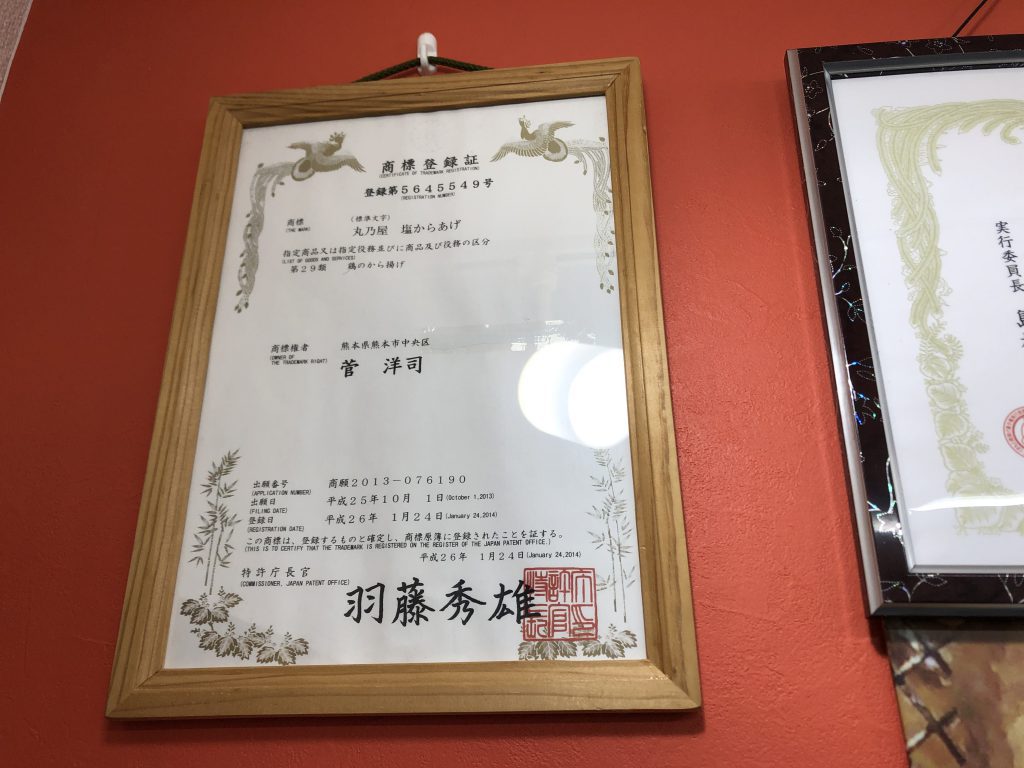 商標登録証
(CERTIFICATE OF TRADEMARK REGISTRATION)
登録第5645549号
(REGISTRATION NUMBER)
商標 (標準文字)
(THE MARK)
丸乃屋 塩からあげ
指定商品又は指定役務並びに商品及び役務の区分
(LIST OF GOODS AND SERVICES)
第29類 鶏のから揚げ
商標権者 熊本県熊本市中央区
(OWNER OF THE TRADEMARK RIGHT)
菅 洋司
出願番号 商願2013-076190
(APPLICATION NUMBER)
出願日 平成25年10月 1日(October 1,2013)
(FILING DATE)
登録日 平成26年 1月24日(January 24,2014)
(REGISTRATION DATE)
この商標は、登録するものと確定し、商標原簿に登録されたことを証する。
(THIS IS TO CERTIFY THAT THE TRADEMARK IS REGISTERED ON THE REGISTER OF THE JAPAN PATENT OFFICE.)
平成26年 1月24日(January 24,2014)
特許庁長官
(COMMISSIONER, JAPAN PATENT OFFICE)
羽藤秀雄
実行委員長